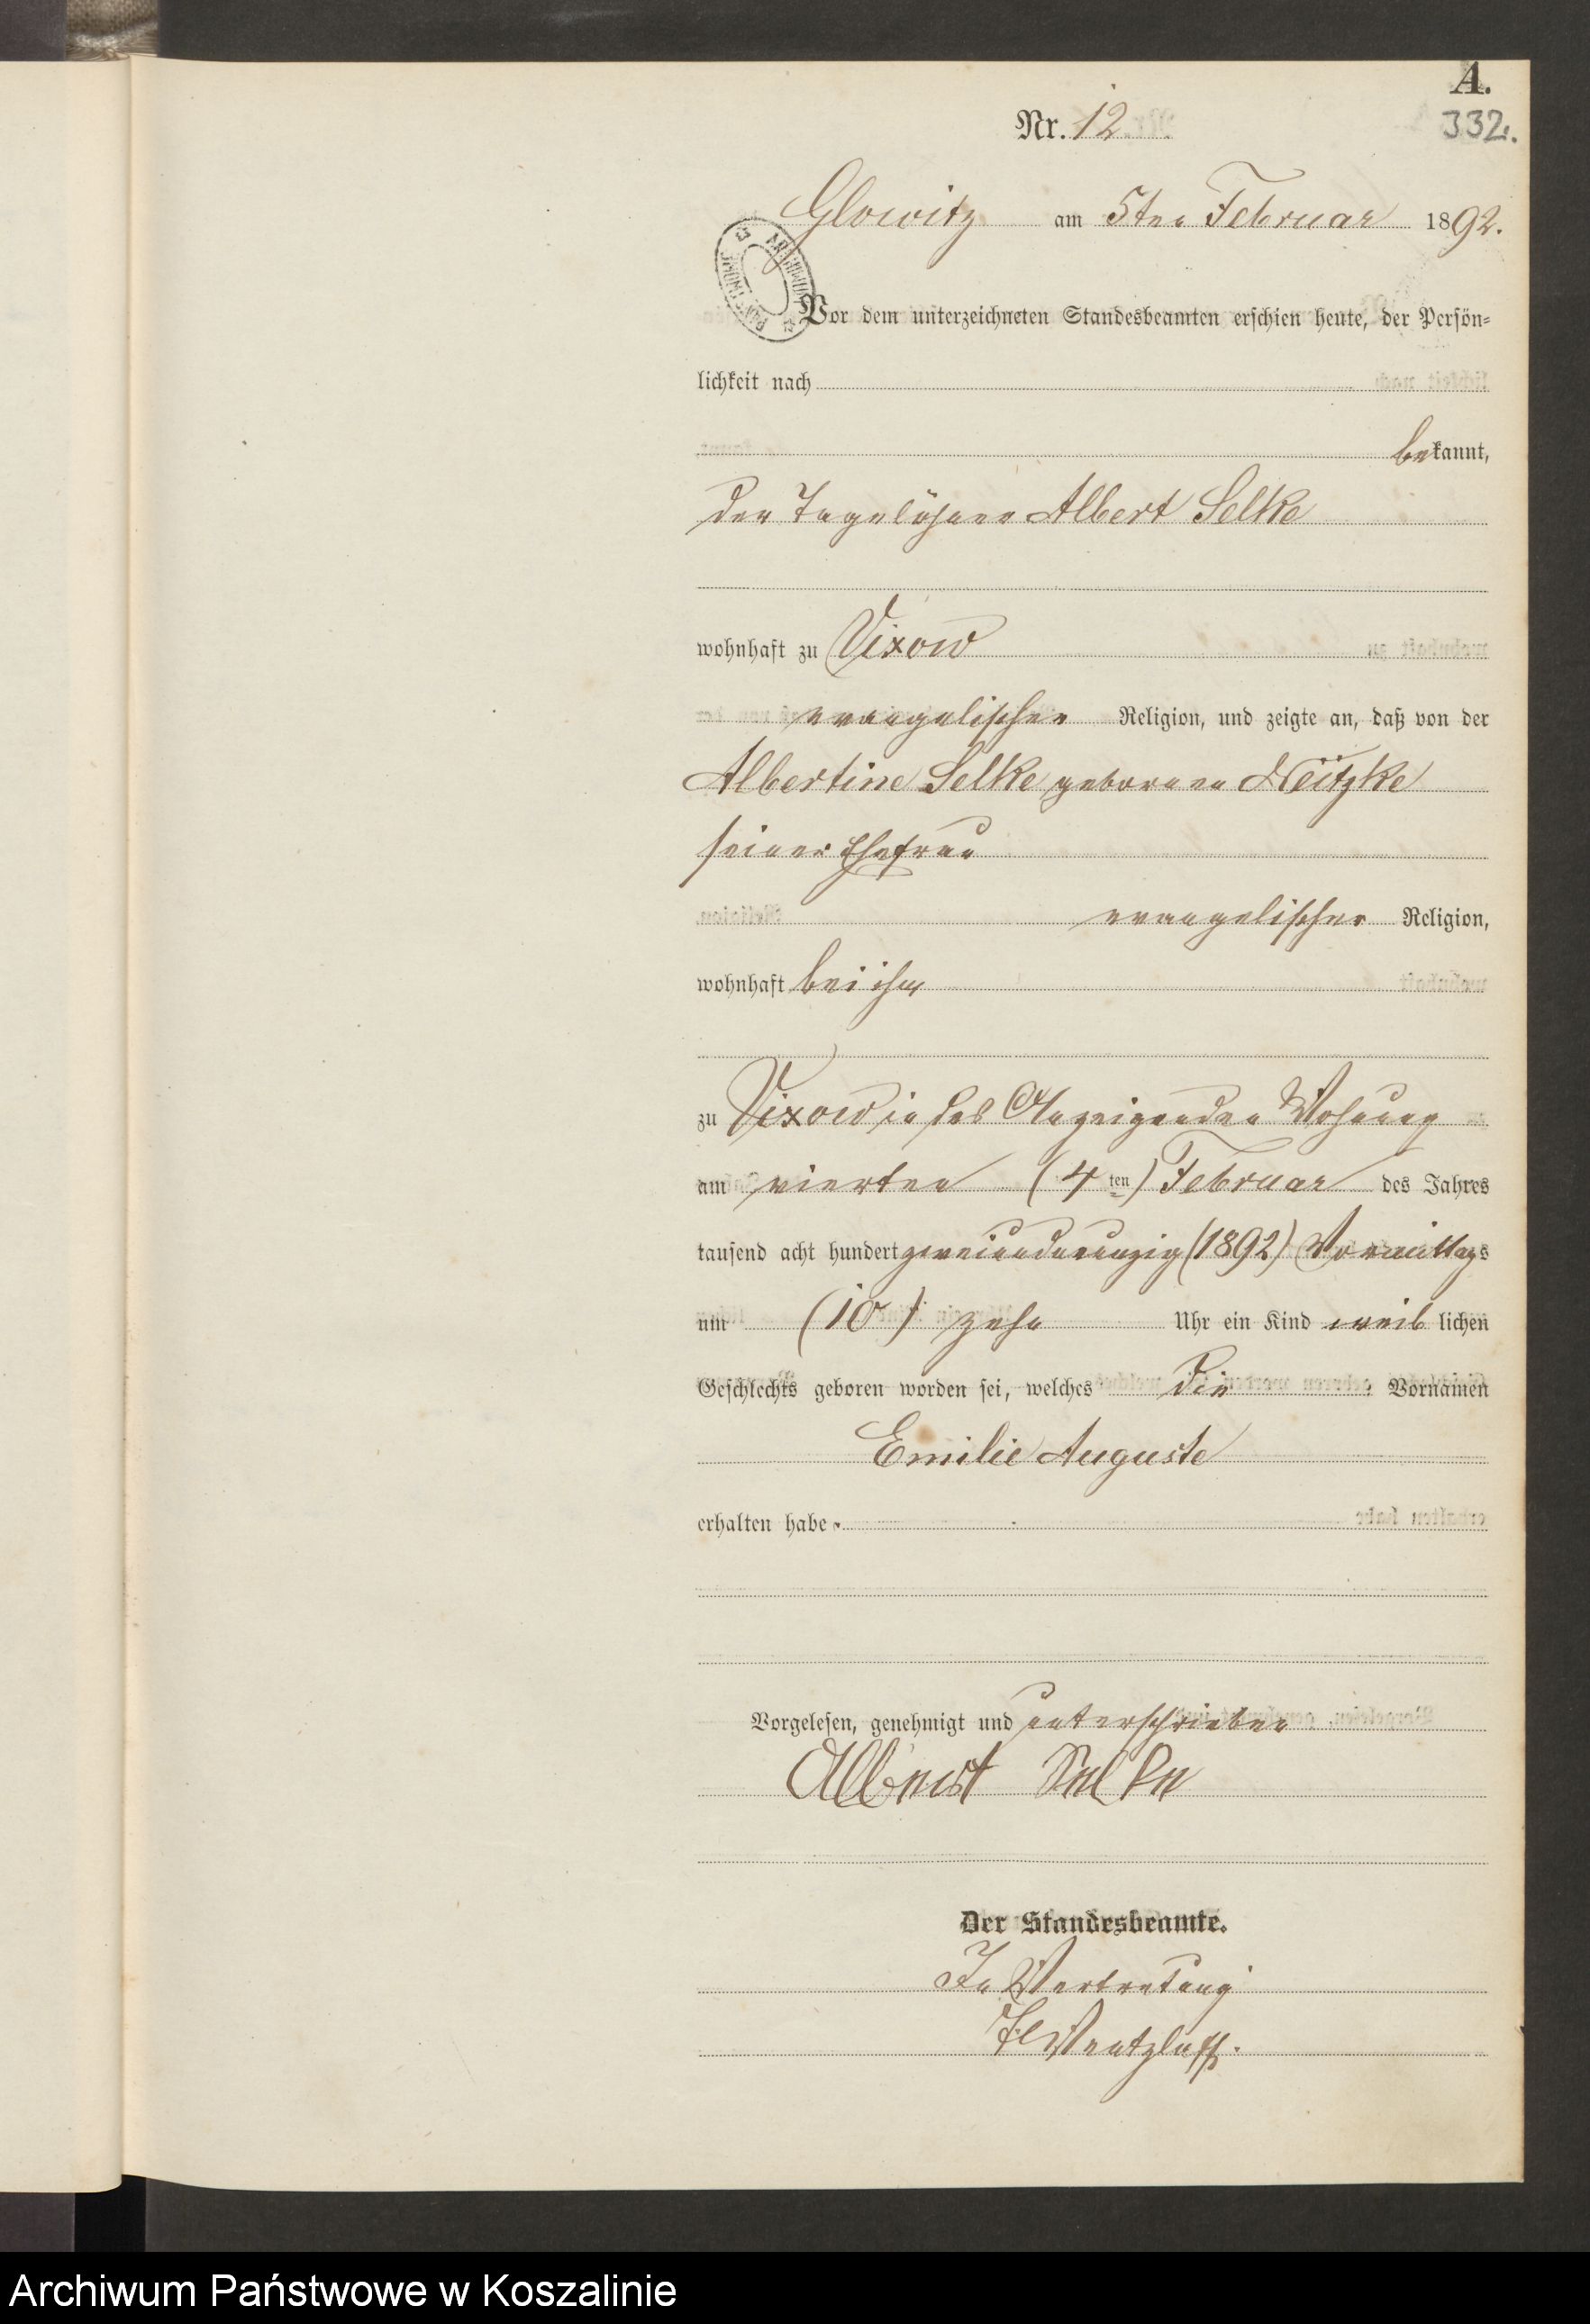 A.
332.
Nr. 12
Glowitz am 5ten Februar 1892.
Vor dem unterzeichneten Standesbeamten erschien heute, der Persön-
lichkeit nach
bekannt,
der Tagelöhner Albert Selke
wohnhaft zu Vixow
evangelischer Religion, und zeigte an, daß von der
Albertine Selke geborenen Neitzke
seiner Ehefrau
evangelischer Religion,
wohnhaft bei ihm
zu Vixow in des Anzeigenden Wohnung
am vierten (4ten) Februar des Jahres
tausend acht hundert zweiundneunzig (1892) Vormittags
um (10) zehn Uhr ein Kind weiblichen
Geschlechts geboren worden sei, welches die Vornamen
Emilie Auguste
erhalten habe.
Vorgelesen, genehmigt und unterschrieben
Albert Selke
Der Standesbeamte.
In Vertretung
Wentzlaff.
Archiwum Państwowe w Koszalinie